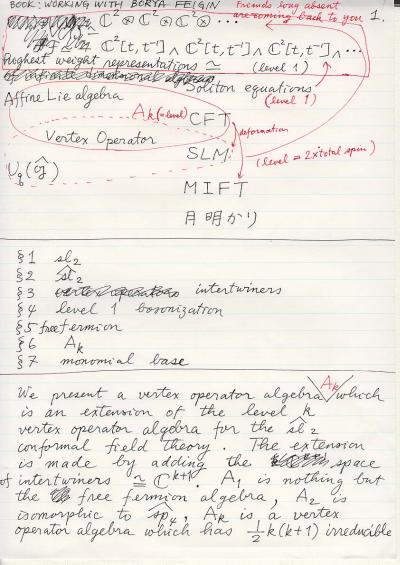 BOOK: WORKING WITH BORYA FEIGIN
Friends long absent are coming back to you 1.
ℂ² ⊗ ℂ² ⊗ ℂ² ⊗ ...
ℂ²[t,t⁻¹] ∧ ℂ²[t,t⁻¹] ∧ ℂ²[t,t⁻¹] ∧ ...
Highest weight representations ≃ (level 1)
of infinite dimensional algebra
Soliton equations
Affine Lie algebra
(level 1)
A_k (=level) CFT
deformation
Vertex Operator
SLM
(level = 2×total spin)
U_q(ĝ)
MIFT
月明かり
§1 sl₂
§2 ŝl₂
§3 vertex operators intertwiners
§4 level 1 bosonization
§5 free fermion
§6 A_k
§7 monomial base
We present a vertex operator algebra A_k which
is an extension of the level k
vertex operator algebra for the ŝl₂
conformal field theory. The extension
is made by adding the space
of intertwiners ≃ ℂᵏ⁺¹. A₁ is nothing but
the free fermion algebra, A₂ is
isomorphic to ŝp₄, A_k is a vertex
operator algebra which has ½k(k+1) irreducible